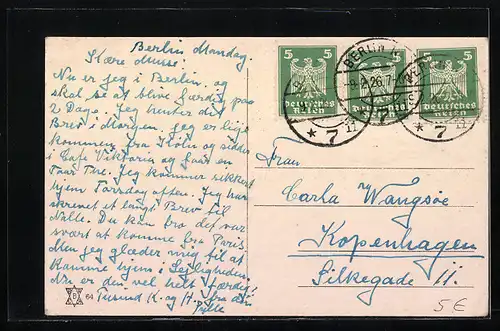 Berlin Mandag.
Kære Musse!
Nu er jeg i Berlin. og
skal se at blive færdig paa
2 Dage. Jeg venter dit
Brev i Morgen. Jeg er lige
kommen fra Köln og sidder
i Café Viktoria og faar en
Taar The. Jeg kommer sikkert
hjem Torsdag aften. Jeg har
skrevet et langt Brev til
Nalle. Du kan tro det var
svært at komme fra Paris.
Men jeg glæder mig til at
komme hjem i Lejligheden.
Nu er den vel helt færdig!
Tusind K. og H. fra din
Pylle
5 5
Deutsches
Reich
5 5
Deutsches
Reich
BERLIN
-8.2.26.7-
* 7 11
* 7 11
Frau
Carla Wangsøe
Kopenhagen
Silkegade 11.
B 64
5 €